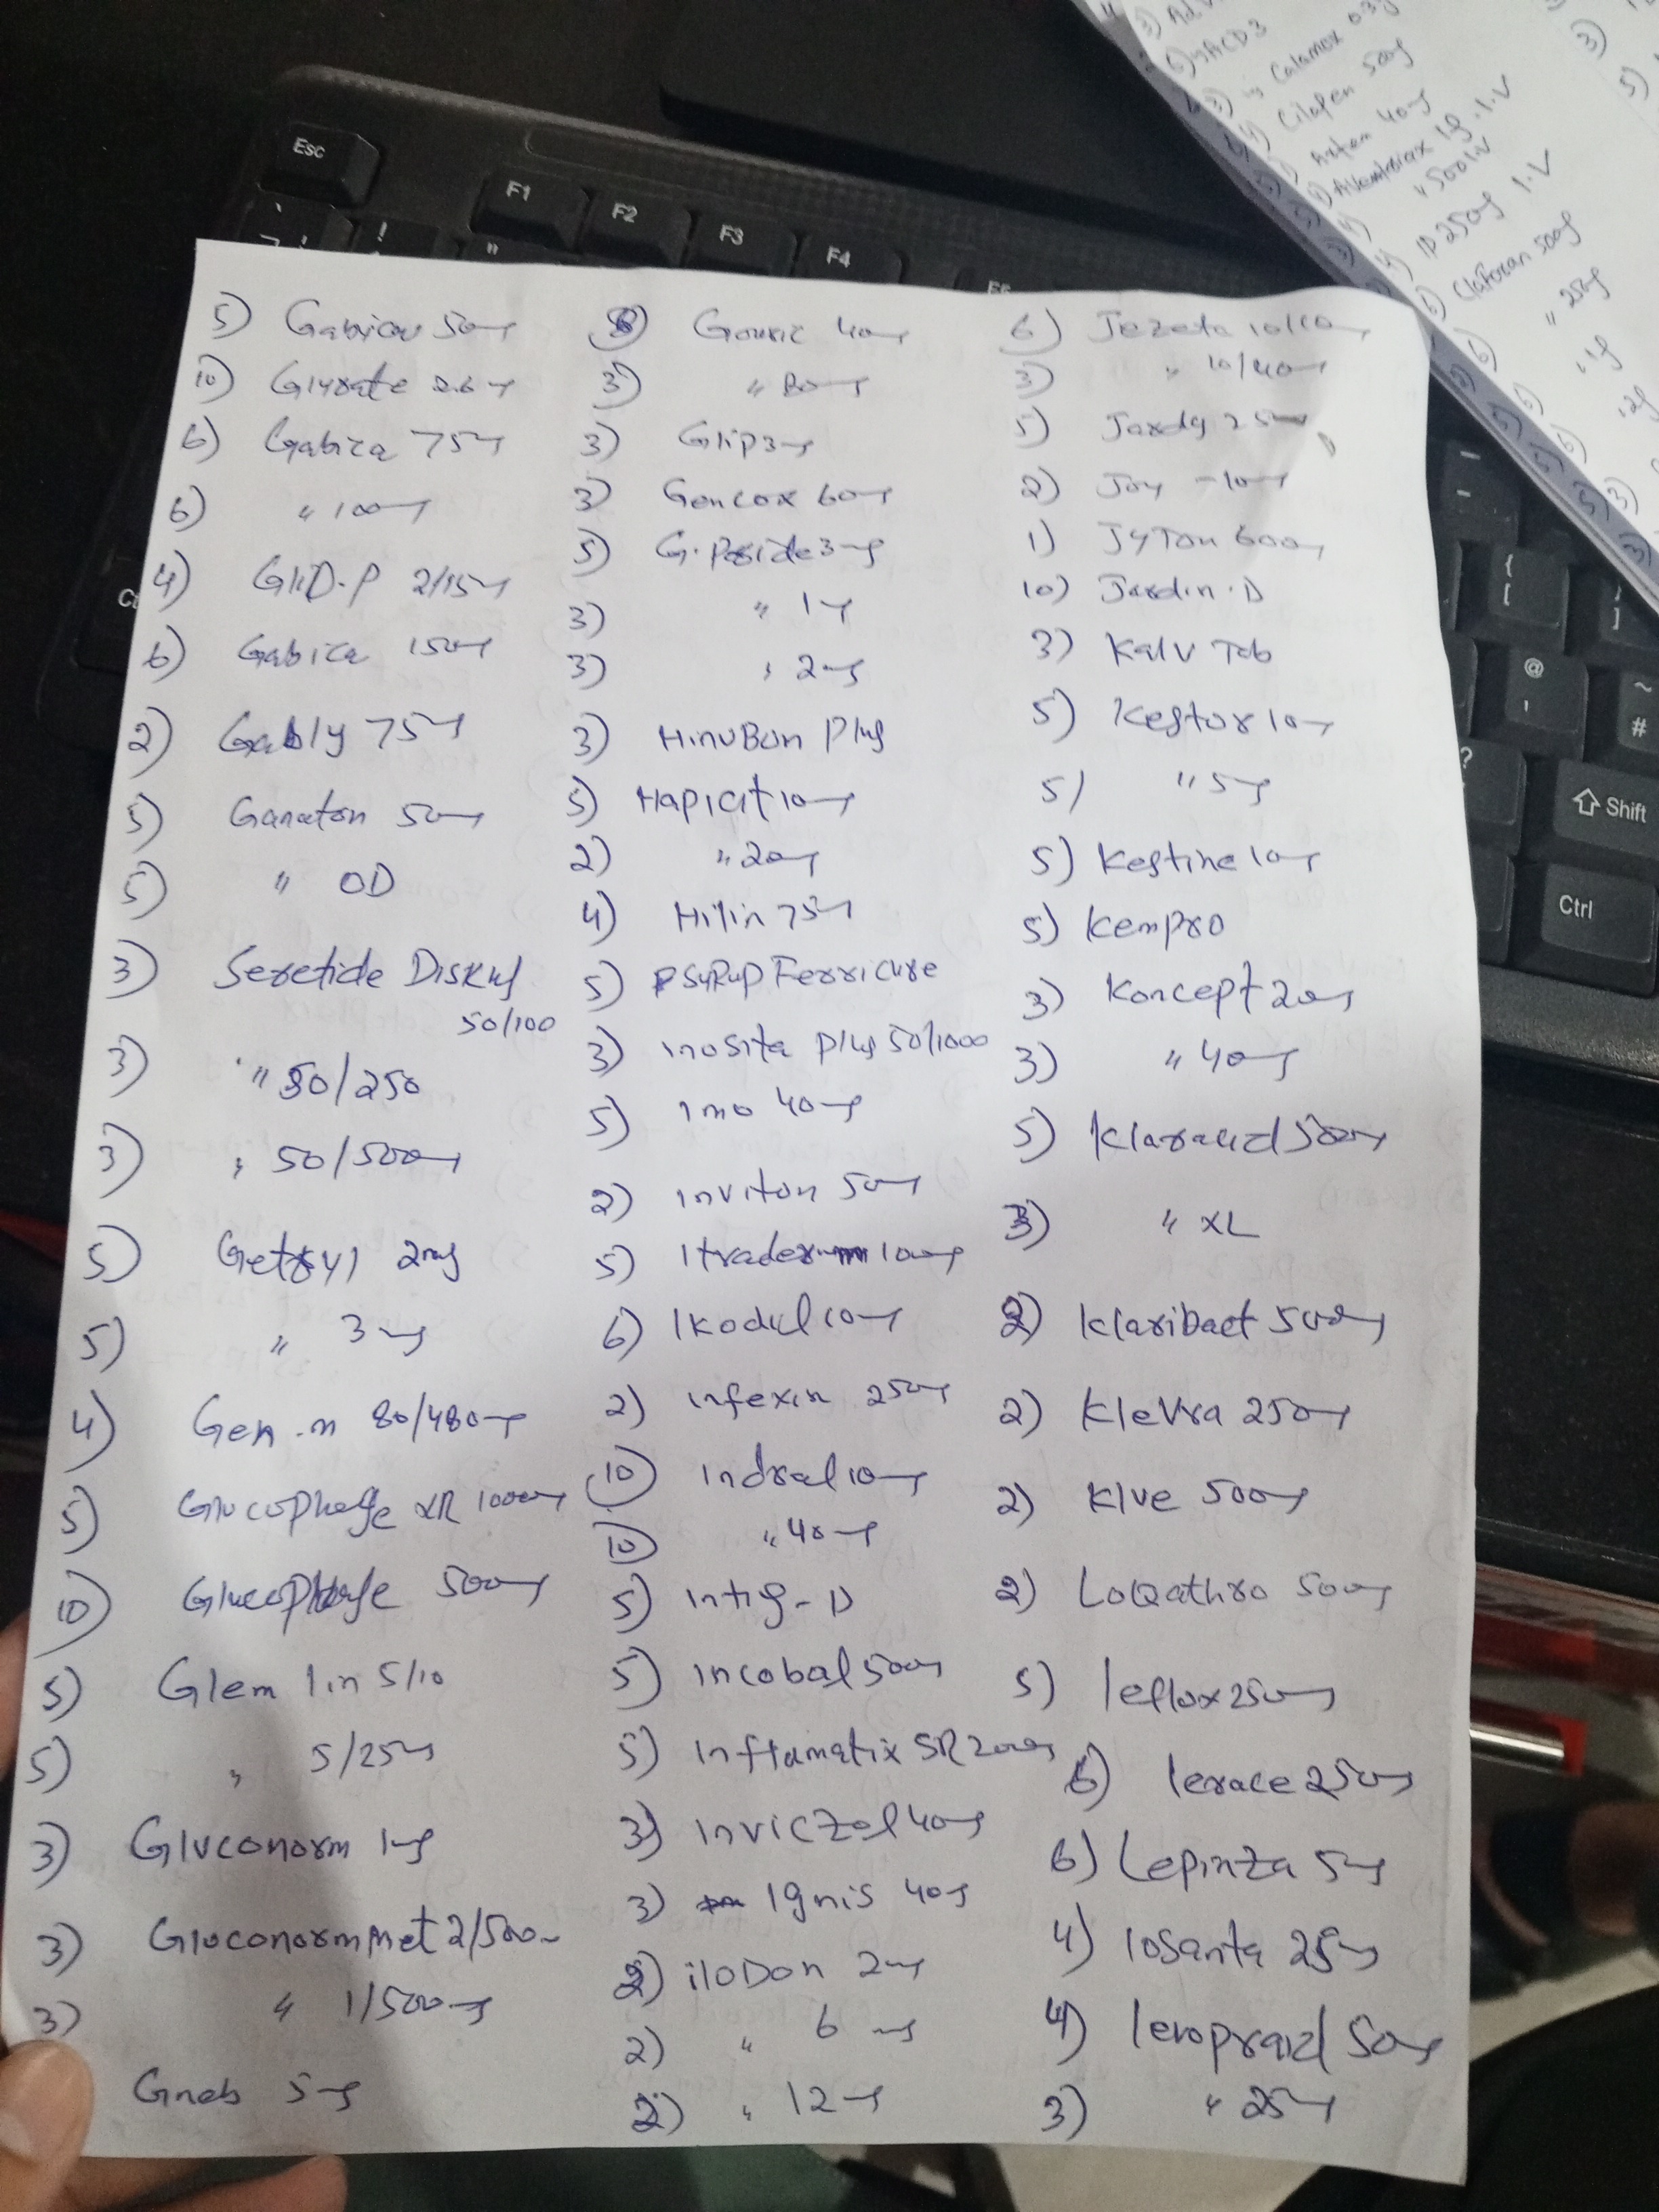 5) Gabicav 50mg
10) Glyrate 2.6mg
6) Gabica 75mg
6) " 100mg
4) GliD.P 2/15mg
6) Gabica 150mg
2) Gably 75mg
5) Ganaton 50mg
5) " OD
3) Seretide Diskus
50/100
3) " 50/250
3) " 50/500mg
5) Getryl 2mg
5) " 3mg
4) Gen.m 80/480mg
5) Glucophage XR 1000mg
10) Glucophage 500mg
5) Glem lin 5/10
5) " 5/25mg
3) Gluconorm 1mg
3) Gluconorm Met 2/500
3) " 1/500mg
Gneb 5mg
8) Gouric 40mg
3) " 80mg
3) Glip3mg
3) Gencox 60mg
5) G.Pride 3mg
3) " 1mg
3) " 2mg
3) HinuBon Plus
5) Hapicit 10mg
2) " 20mg
4) Hilin 75mg
5) SyRup Ferricure
3) inosita Plus 50/1000
5) imo 40mg
2) inviton 50mg
5) Itraderm 100mg
6) Ikodul 10mg
2) infexin 250mg
10) Indral 10mg
10) " 40mg
5) Intig-D
5) Incobal 500mg
5) Inflamatix SR 200mg
3) Inviczol 40mg
3) Ignis 40mg
2) iloDon 2mg
2) " 6 mg
2) " 12mg
6) Jezeta 10/10
3) " 10/40mg
5) Jardy 25mg
2) Joy -10mg
1) JyTon 600mg
10) Jardin.D
3) Kalv Tab
5) Kestor 10mg
5) " 5mg
5) Kestine 10mg
5) Kempro
3) Koncept 20mg
3) " 40mg
5) Klaracid 500mg
3) " XL
2) Klaribact 500mg
2) Klevra 250mg
2) Klve 500mg
2) LoQathro 500mg
5) leflox 250mg
6) lerace 250mg
6) Lepinza 5mg
4) losanta 25mg
4) levopraid 50mg
3) " 25mg
6) " ACD3
3) " Calamox 0.3g
Cilapen 500g
Axten 40mg
Aventriax 1g I.V
" 500 I.V
" 250g I.V
Claforan 500g
" 250g
" 1g
" 2g
Esc
F1
F2
F3
F4
Shift
Ctrl